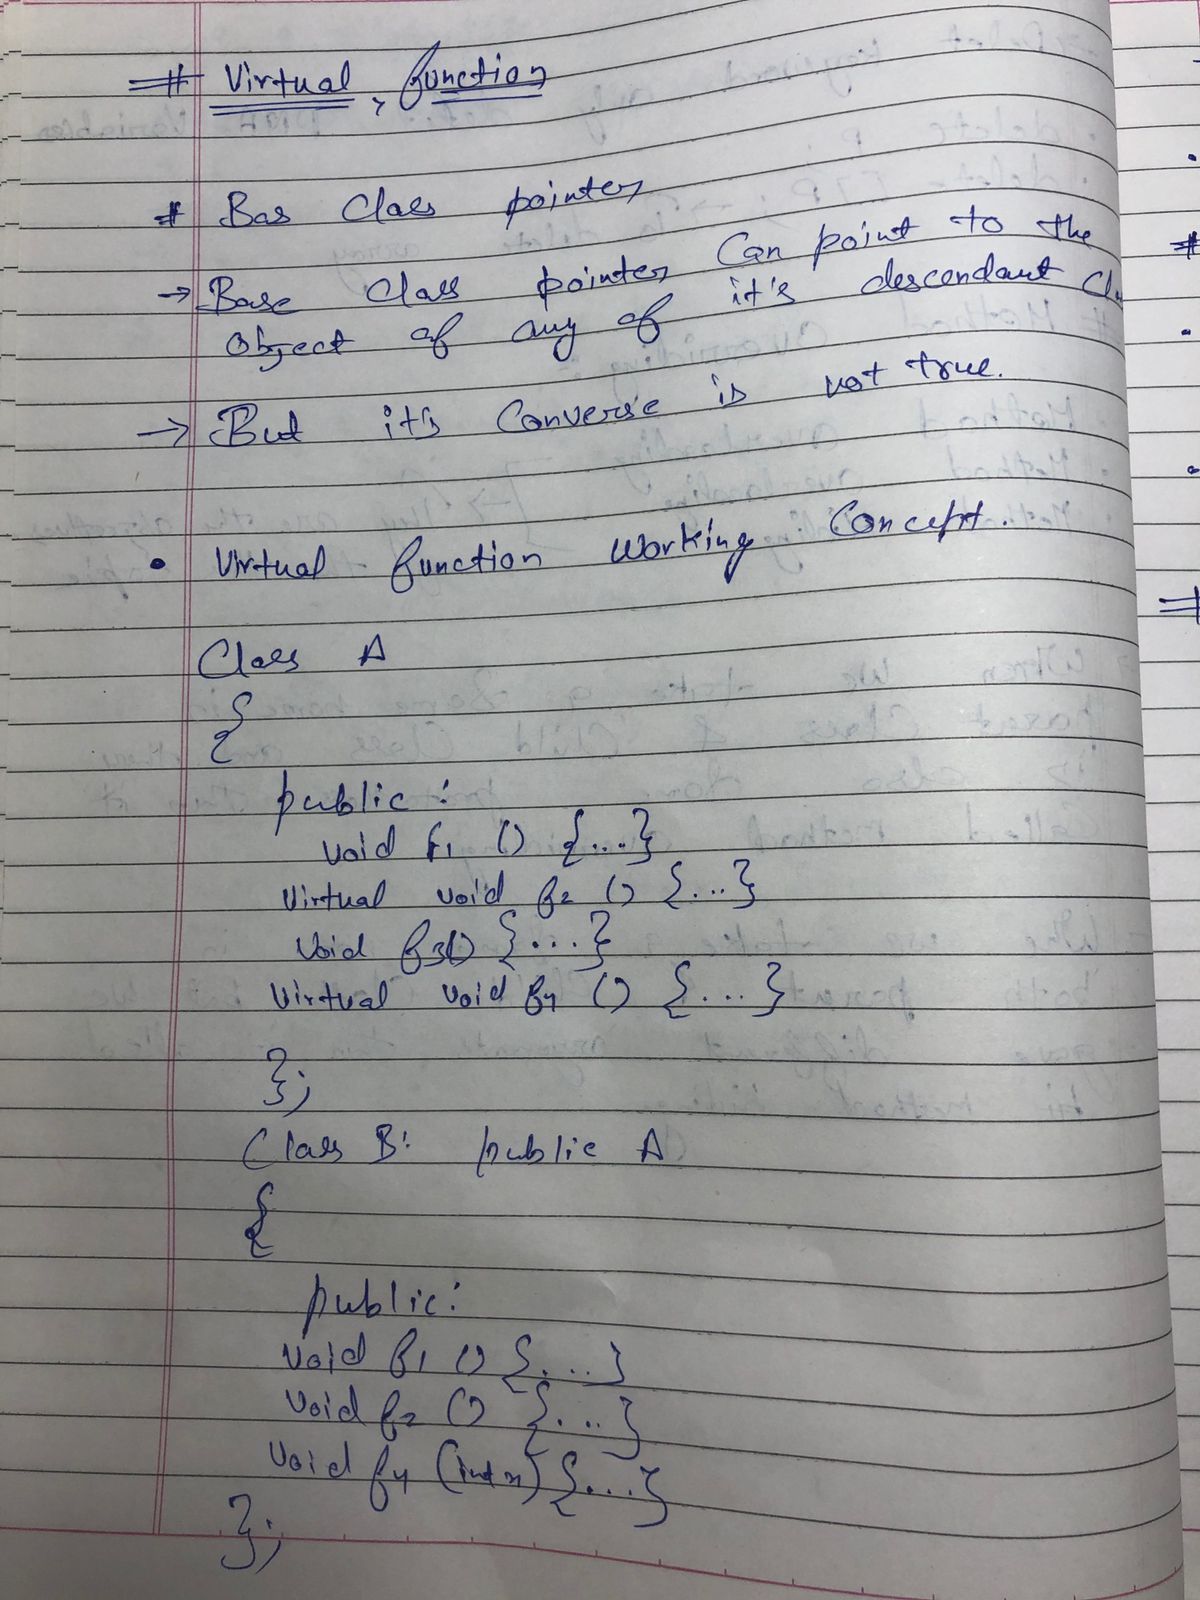 # Virtual function
# Bas Class pointer
→ Base Class pointer Can point to the
Object of any of it's descendant
→ But it's Converse is not true.
• Virtual function working Concept.
Class A
{
public :
void f1 () {...}
Virtual void f2 () {...}
Void f3() {...}
Virtual void f4 () {...}
};
Class B: public A
{
public:
void f1 () {...}
void f2 () {...}
void f4 (int x) {...}
};